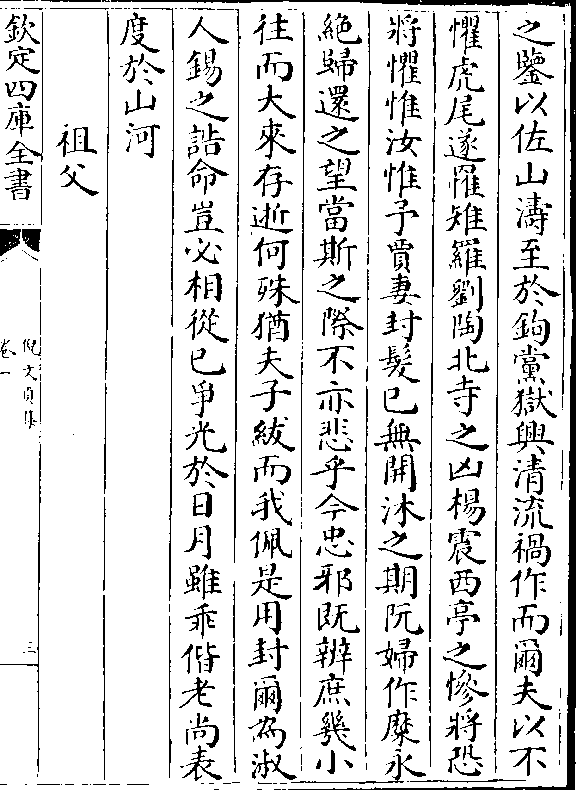 之鑒以佐山濤至於鉤黨獄興清流禍作而爾夫以不
懼虎尾遂罹雉羅劉陶北寺之凶楊震西亭之慘將恐
將懼惟汝惟予賈妻封髮已無開沐之期阮婦作糜永
絶歸還之望當斯之際不亦悲乎今忠邪既辨庶幾小
往而大來存逝何殊猶夫子紱而我佩是用封爾為淑
人錫之誥命豈必相從已爭光於日月雖乖偕老尚表
度於山河
祖父
欽定四庫全書
倪文貞集
卷一
三